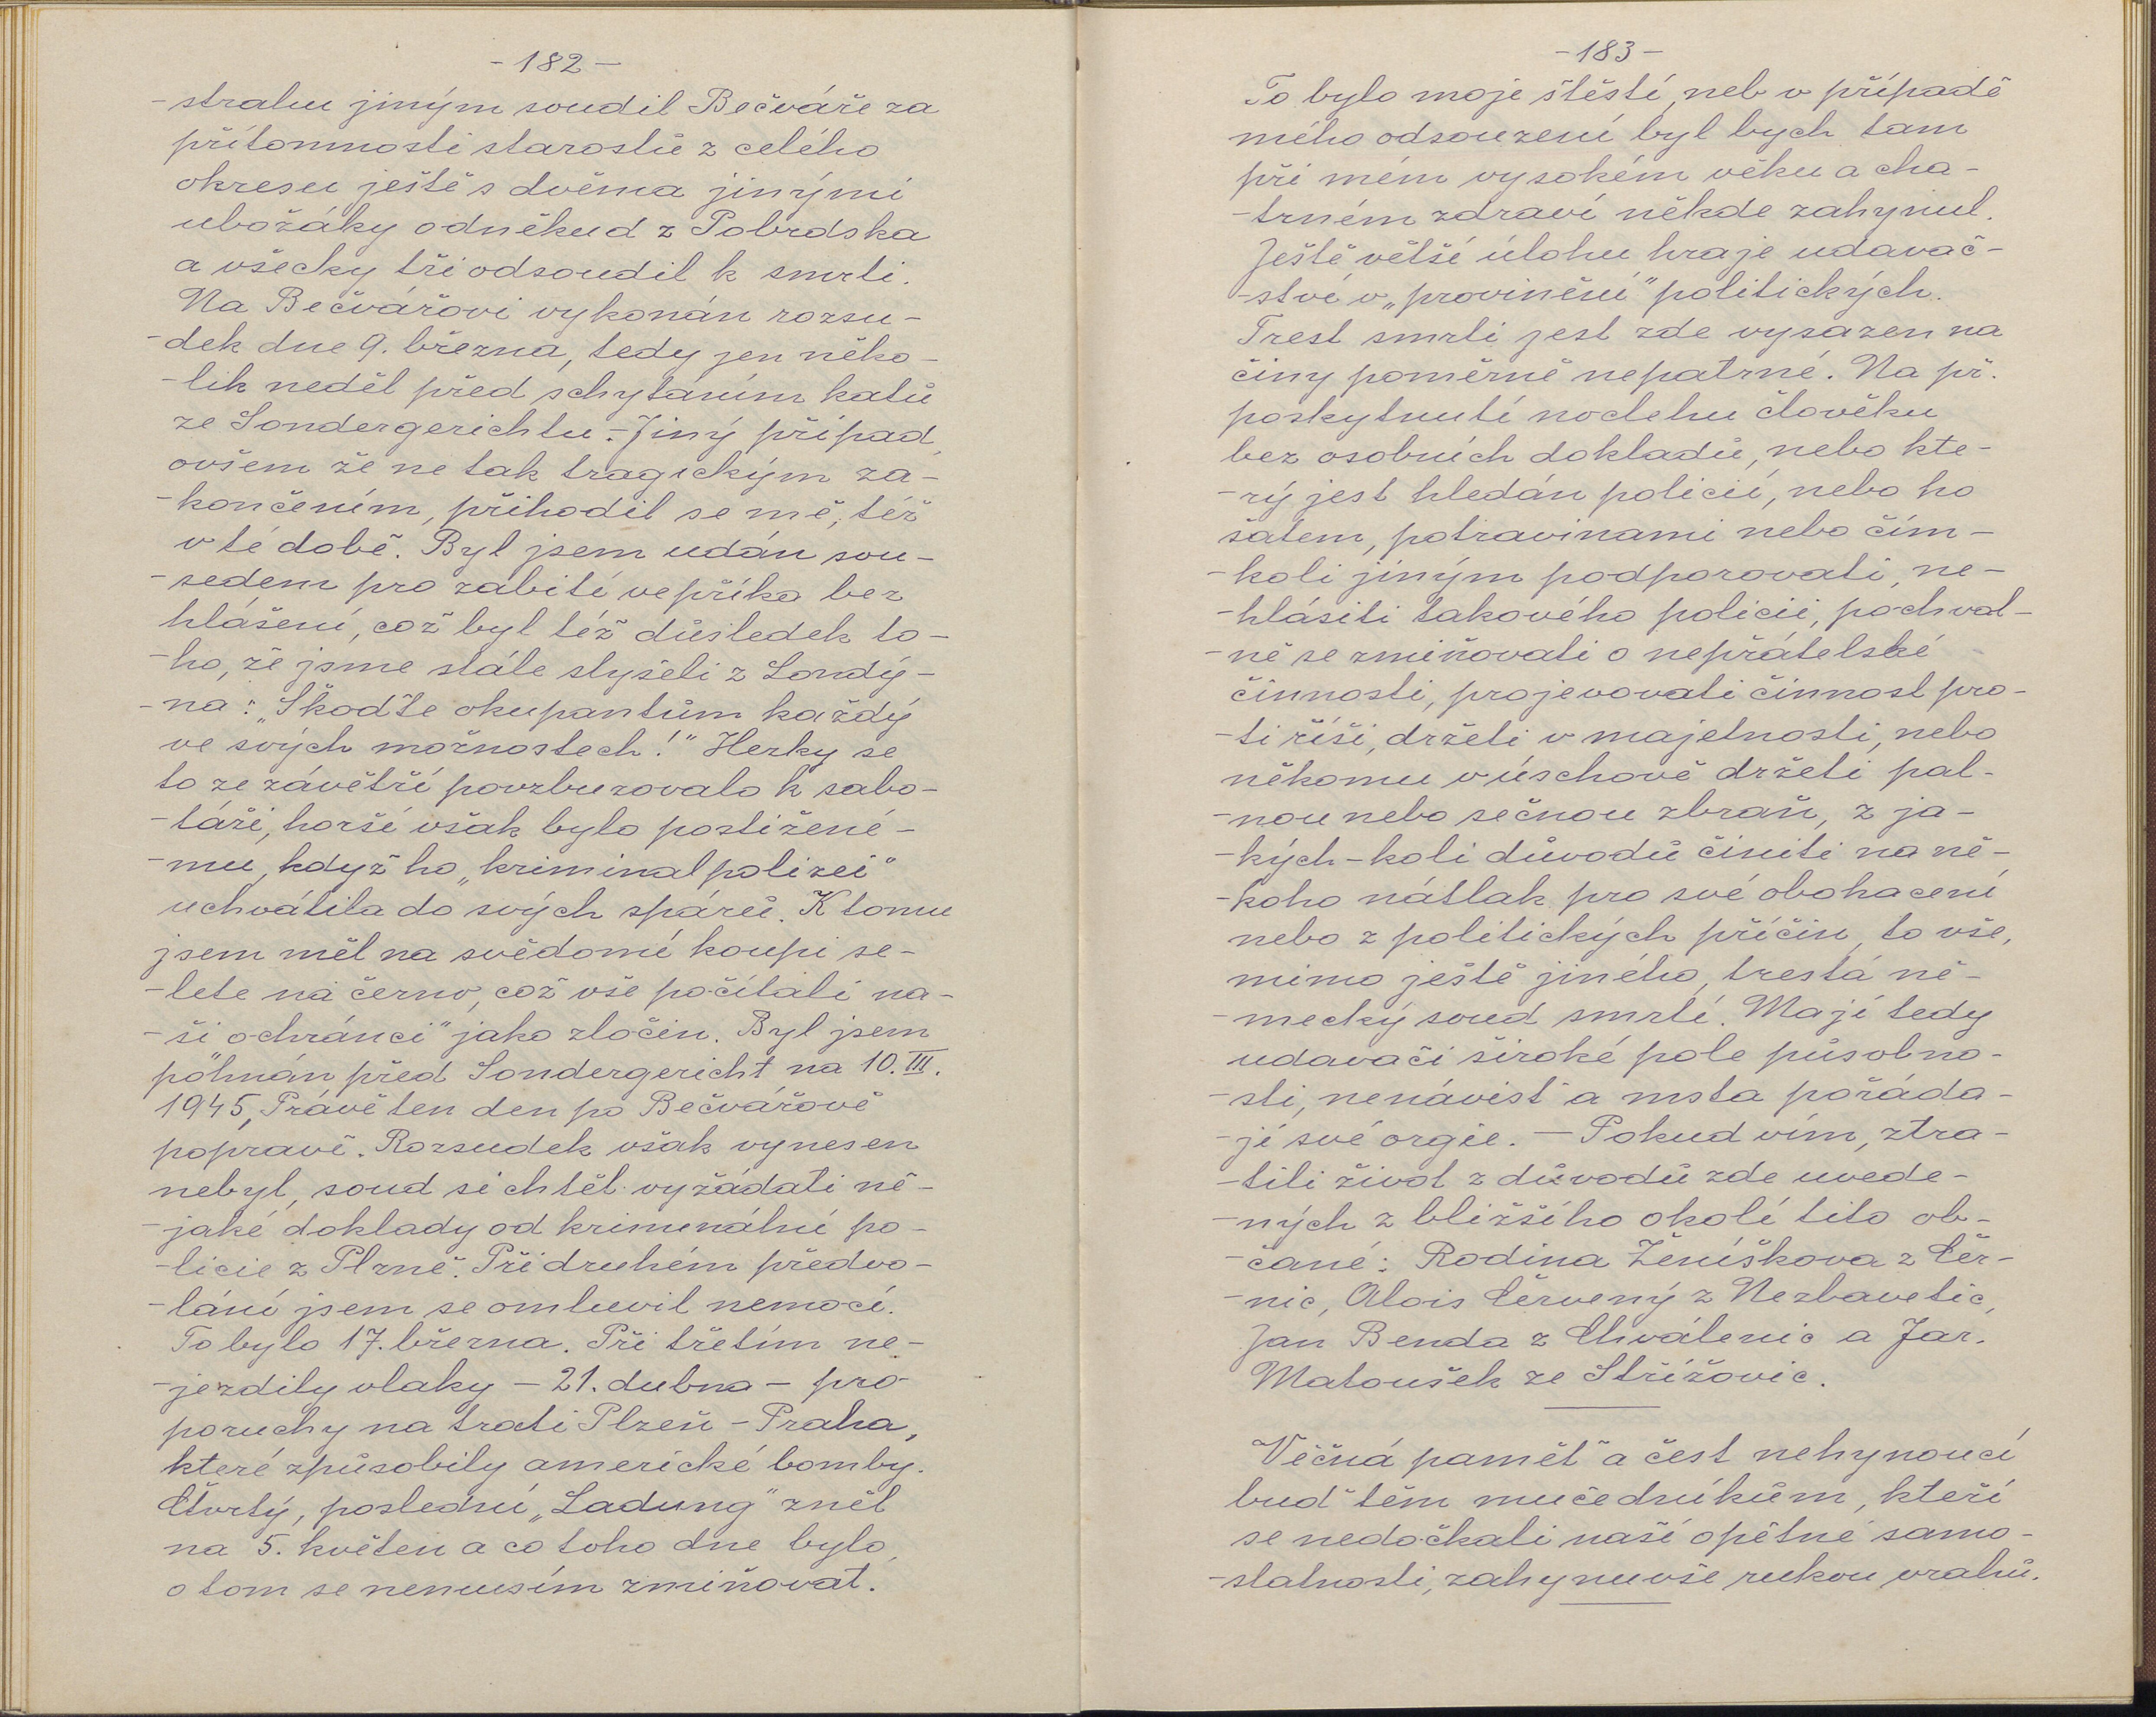 - 182 -
-strahu jiným soudil Bečváře za
přítomnosti starostů z celého
okresu ještě s dvěma jinými
ubožáky odněkud z Pobrdska
a všecky tři odsoudil k smrti.
Na Bečvářovi vykonán rozsu-
-dek dne 9. března, tedy jen něko-
-lik neděl před schytáním katů
ze Sondergerichtu.- Jiný případ,
ovšem že ne tak tragickým za-
-končením, přihodil se mě, též
v té době. Byl jsem udán sou-
-sedem pro zabití vepříka bez
hlášení, což byl též důsledek to-
-ho, že jsme stále slyšeli z Londý-
-na: „Škoďte okupantům každý
ve svých možnostech!" Hezky se
to ze závětří povzbuzovalo k sabo-
-táži, horší však bylo postižené-
-mu, když ho „kriminalpolizei"
uchvátila do svých spárů. K tomu
jsem měl na svědomí koupi se-
-lete na černo, což vše počítali na-
-ši ochránci" jako zločin. Byl jsem
pohnán před Sondergericht na 10. III.
1945, Právě ten den po Bečvářově
popravě. Rozsudek však vynesen
nebyl, soud si chtěl vyžádati ně-
-jaké doklady od kriminální po-
-licie z Plzně. Při druhém předvo-
-lání jsem se omluvil nemocí.
To bylo 17. března. Při třetím ne-
-jezdily vlaky - 21. dubna - pro
poruchy na trati Plzeň - Praha,
které způsobily americké bomby.
Čtvrtý, poslední „Ladung" zněl
na 5. květen a co toho dne bylo,
o tom se nemusím zmiňovat.
- 183 -
To bylo moje štěstí, neb v případě
mého odsouzení byl bych tam
při mém vysokém věku a cha-
-trném zdraví někde zahynul.
Ještě větší úlohu hraje udavač-
-ství v „provinění" politických.
Trest smrti jest zde vysazen na
činy poměrně nepatrné. Na př.
poskytnutí noclehu člověku
bez osobních dokladů, nebo kte-
-rý jest hledán policií, nebo ho
šatem, potravinami nebo čím-
-koli jiným podporovati, ne-
-hlásiti takového policii, pochval-
-ně se zmiňovati o nepřátelské
činnosti, projevovati činnost pro-
-ti říši, držeti v majetnosti, nebo
někomu v úschově držeti pal-
-nou nebo sečnou zbraň, z ja-
-kých-koli důvodů činiti na ně-
-koho nátlak pro své obohacení
nebo z politických příčin, to vše,
mimo ještě jiného, trestá ně-
-mecký soud smrtí. Mají tedy
udavači široké pole působno-
-sti, nenávist a msta pořáda-
-jí své orgie. — Pokud vím, ztra-
-tili život z důvodů zde uvede-
-ných z bližšího okolí tito ob-
-čané: Rodina Ženíškova z Čer-
-nic, Alois Červený z Nezbavetic,
Jan Benda z Chválenic a Jar.
Matoušek ze Střížovic.
Věčná paměť a čest nehynoucí
buď těm mučedníkům, kteří
se nedočkali naší opětné samo-
-statnosti, zahynuvše rukou vrahů.